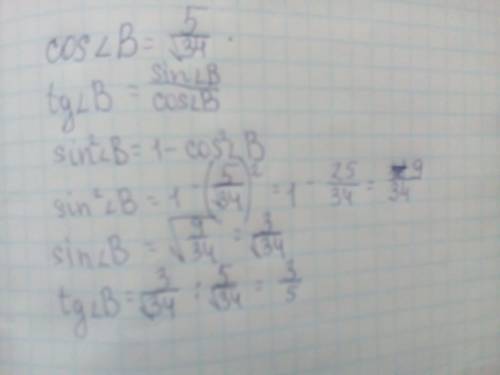 cos∠B = 5/√34.
tg∠B = sin∠B/cos∠B
sin²∠B = 1 - cos²∠B
sin²∠B = 1 - (5/√34)² = 1 - 25/34 = 9/34
sin∠B = √(9/34) = 3/√34
tg∠B = 3/√34 : 5/√34 = 3/5